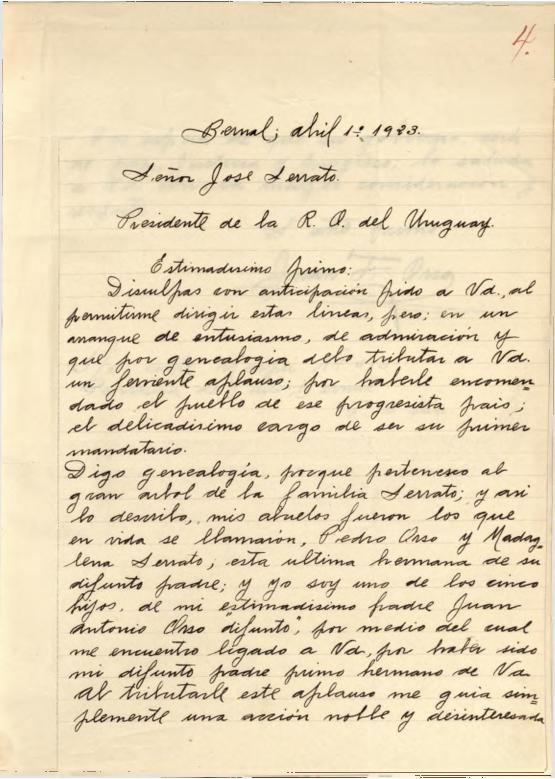 4.
Bernal; abril 1º 1923.
Señor José Serrato.
Presidente de la R. O. del Uruguay.
Estimadisimo primo:
Disculpas con anticipación pido a Vd., al
permitirme dirigir estas lineas, pero; en un
arranque de entusiasmo, de admiración y
que por genealogia debo tributar a Vd.
un ferviente aplauso; por haberle encomen-
dado el pueblo de ese progresista pais;
el delicadisimo cargo de ser su primer
mandatario.
Digo genealogía, porque pertenesco al
gran arbol de la familia Serrato; y asi
lo describo, mis abuelos fueron los que
en vida se llamarón, Pedro Orso y Madag-
lena Serrato; esta ultima hermana de su
difunto padre; y yo soy uno de los cinco
hijos, de mi estimadisimo padre Juan
Antonio Orso "difunto", por medio del cual
me encuentro ligado a Vd., por haber sido
mi difunto padre primo hermano de Vd.
Al tributarle este aplauso me guia sim-
plemente una acción noble y desinteresada